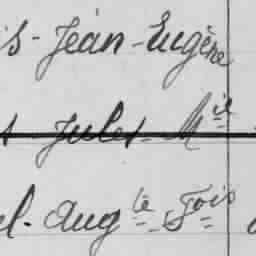 s-Jean-Eugène
s Jules-Mie
el-Augte-Fois